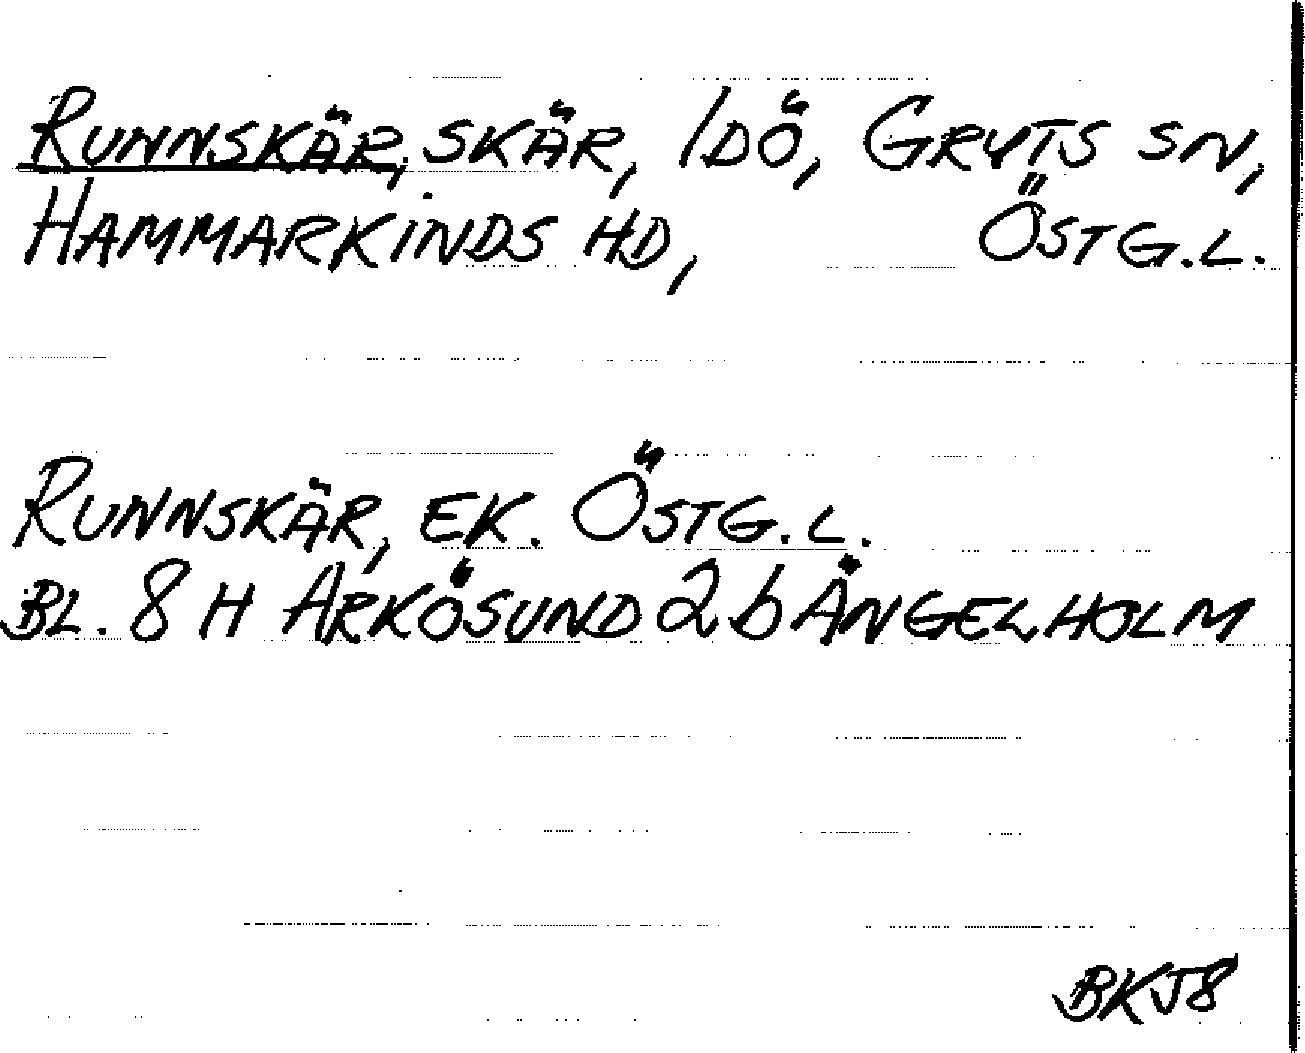 RUNNSKÄR, SKÄR, IDÖ, GRYTS SN,
HAMMARKINDS HD, ÖSTG.L.
RUNNSKÄR, EK. ÖSTG.L.
BL. 8 H ARKÖSUND 2 b ÄNGELHOLM
BKJ8